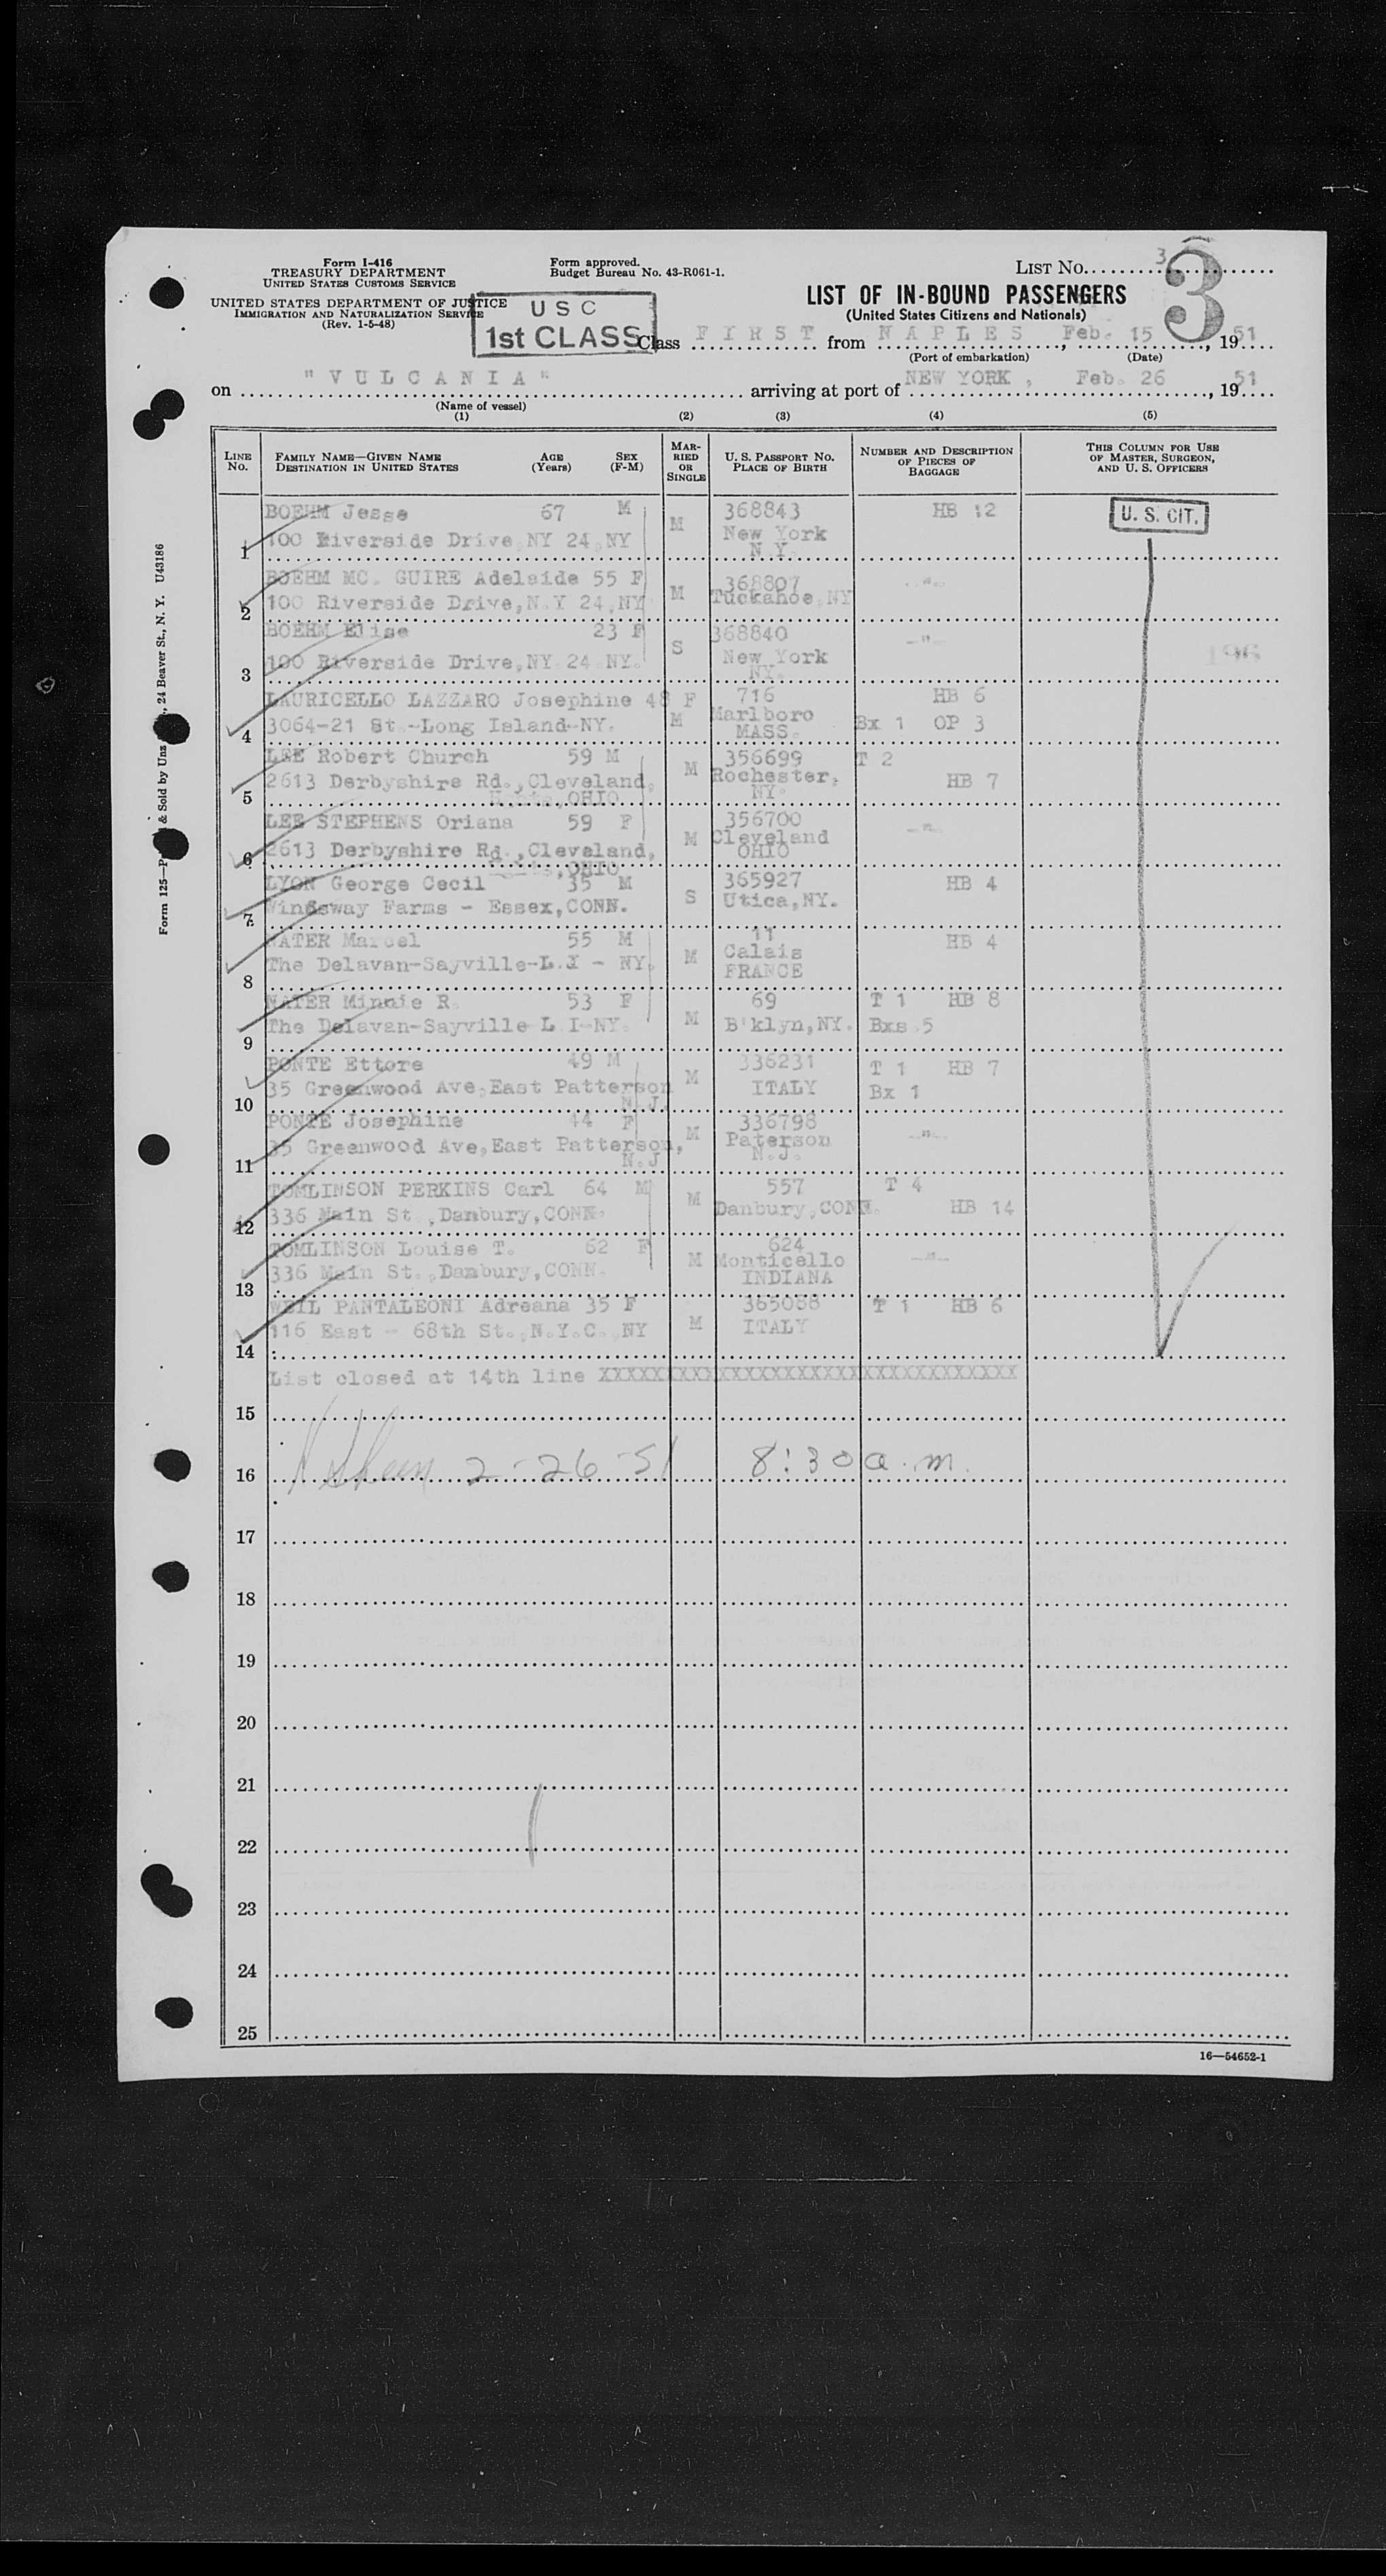 Form I-416
TREASURY DEPARTMENT
UNITED STATES CUSTOMS SERVICE
UNITED STATES DEPARTMENT OF JUSTICE
IMMIGRATION AND NATURALIZATION SERVICE
(Rev. 1-5-48)
Form approved.
Budget Bureau No. 43-R061-1.
LIST No. 3
3
LIST OF IN-BOUND PASSENGERS
(United States Citizens and Nationals)
U S C
1st CLASS
Class FIRST from NAPLES, Feb. 15, 1951
(Port of embarkation) (Date)
on "VULCANIA" arriving at port of NEW YORK, Feb. 26, 1951
(Name of vessel)
(1) (2) (3) (4) (5)
LINE No. FAMILY NAME—GIVEN NAME DESTINATION IN UNITED STATES AGE (Years) SEX (F-M) MARRIED OR SINGLE U. S. PASSPORT NO. PLACE OF BIRTH NUMBER AND DESCRIPTION OF PIECES OF BAGGAGE THIS COLUMN FOR USE OF MASTER, SURGEON, AND U. S. OFFICERS
BOEHM Jesse 67 M M 368843 HB 12 U. S. CIT.
1 100 Riverside Drive, NY 24, NY New York N.Y.
BOEHM MC. GUIRE Adelaide 55 F M 368807 -"-
2 100 Riverside Drive, N.Y 24, NY Tuckahoe, NY
BOEHM Elise 23 F S 368840 -"-
3 100 Riverside Drive, NY 24 NY. New York NY. 196
LAURICELLO LAZZARO Josephine 48 F M 716 HB 6
4 3064-21 St.-Long Island-NY. Marlboro MASS. Bx 1 OP 3
LEE Robert Church 59 M M 356699 T 2
5 2613 Derbyshire Rd., Cleveland, OHIO Rochester, NY. HB 7
LEE STEPHENS Oriana 59 F M 356700 -"-
6 2613 Derbyshire Rd., Cleveland, OHIO Cleveland OHIO
LYON George Cecil 35 M S 365927 HB 4
7 Windsway Farms - Essex, CONN. Utica, NY.
NATER Marcel 55 M M 11 HB 4
8 The Delavan-Sayville-L.I - NY. Calais FRANCE
NATER Minnie R. 53 F M 69 T 1 HB 8
9 The Delavan-Sayville-L.I-NY. B'klyn, NY. Bxs 5
PONTE Ettore 49 M M 336231 T 1 HB 7
10 35 Greenwood Ave, East Patterson N.J. ITALY Bx 1
PONTE Josephine 44 F M 336798 -"-
11 35 Greenwood Ave, East Patterson, N.J Paterson N.J.
TOMLINSON PERKINS Carl 64 M M 557 T 4
12 336 Main St., Danbury, CONN. Danbury, CONN. HB 14
TOMLINSON Louise T. 62 F M 624 -"-
13 336 Main St., Danbury, CONN. Monticello INDIANA
WEIL PANTALEONI Adreana 35 F M 365088 T 1 HB 6
14 116 East - 68th St., N.Y.C. NY ITALY
List closed at 14th line XXXXXXXXXXXXXXXXXXXXXXXXXXXXXXXX
15
16 2-26-51 8:30 a.m.
17
18
19
20
21
22
23
24
25
16—54652-1
Form 125— & Sold by Unz , 24 Beaver St., N. Y. U43186